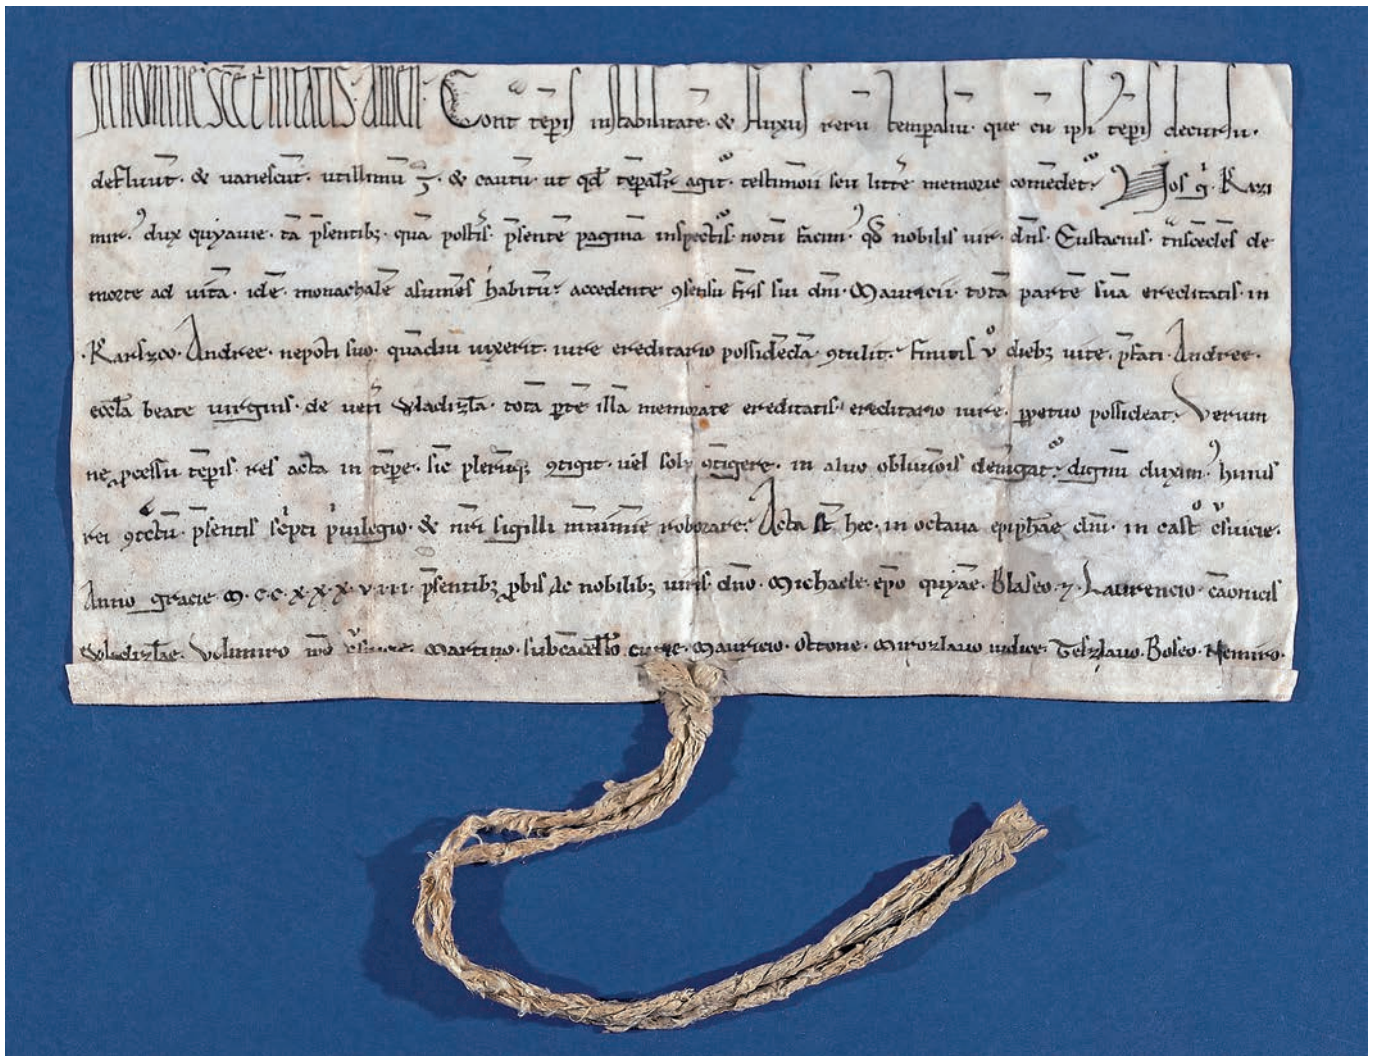 In nomine sc̄e t̄nitatis· amen· Cont͛ tēpis instabilitatē· & fluxus rerū temp̄aliū· que cū ip̄i tēpis decursu·
defluūt· & vanescūt· utillimū ē· & cautū· ut qd̄ tēpalit͛ agit᷒· testimōii seu litt͛e memorie com̄edet᷒· Nos g͛· Kazi
mir᷒· dux quyavie· tā p̄sentibꝫ· quā post͛is· p̄sentē paginā inspect᷒is· notū facim᷒· qd̄ nobilis vir· dn̄s· Eustacius· t͛nscēdēs de
morte ad vitā· idē· monachalē asumēs habitū· accedente ꝯsensu fr̄is sui dn̄i· Mauricii· totā partē suā ereditatis· in
·Karszco· Andree· nepoti suo· quādiu vixerit· iure ereditario possidēdā· ꝯtulit· finitis v͛o diebꝫ vite· p̄fati· Andree·
eccl̄a beate virginis· de vet͛i Wladizl̄a· totā p̄tē illā memorate ereditatis· ereditario iure· ꝑpetuo possideat· Verum
ne ꝓcessu tēpis· res acta in tēpe· sic plerūqꝫ ꝯtigit· vel sol& ꝯtigere· in alvo oblivōis deveīgat᷒· dignū duxim᷒· huius
rei ꝯt͛ctū· p̄sentis sc͛pti p͛vilegio· & nr̄i sigilli mūnimīe roborare· Acta st̄ hec· in octava epiphāe dn̄i· in cast͛o c͛svicie·
Anno gracie M·C·C·X·X·X·V·I·I·I· p̄sentibꝫ ꝓbis ac nobilibꝫ viris· dn̄o· Michaele· ep̄o quyāe· Blaseo· ⁊· Laurencio· cāonicis
Wladizl̄ae· Volimiro Martino· subcācell᷒o curie· Mauricio· Ottone· Mirozlavo iudice· Teszlavo· Boleo· Nemiro·